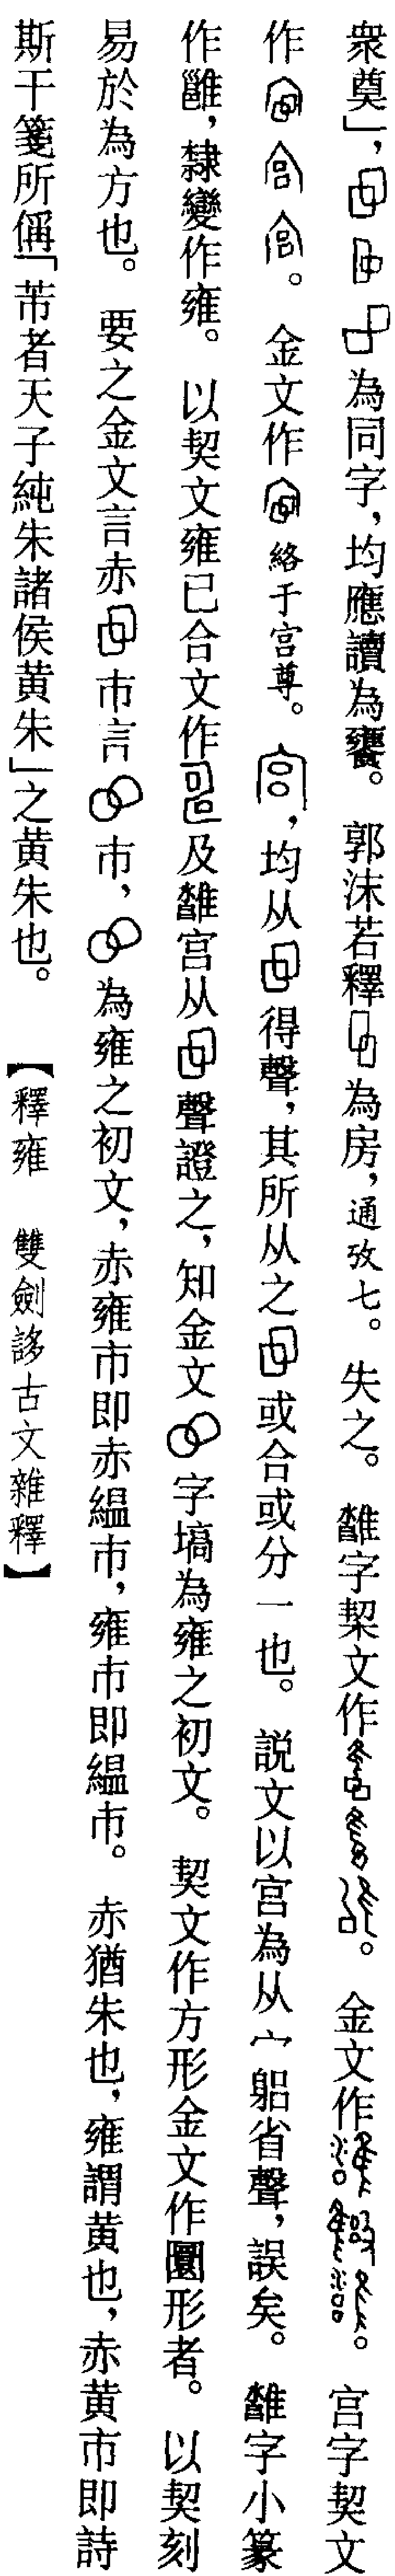 衆奠」，為同字，均應讀為饔。郭沫若釋為房，通攷七。失之。雝字栔文作。金文作。宮字契文
作。金文作絡于宮尊。，均从得聲，其所从之或合或分一也。説文以宮為从宀躳省聲，誤矣。雝字小篆
作雝，隸變作雍。以契文雍已合文作及雝宮从聲證之，知金文字塙為雍之初文。契文作方形金文作圜形者。以契刻
易於為方也。要之金文言赤市言市，為雍之初文，赤雍市即赤縕市，雍市即縕市。赤猶朱也，雍謂黄也，赤黄市即詩
斯干箋所偁「芾者天子純朱諸侯黄朱」之黄朱也。【釋雍　雙劍誃古文雜釋】